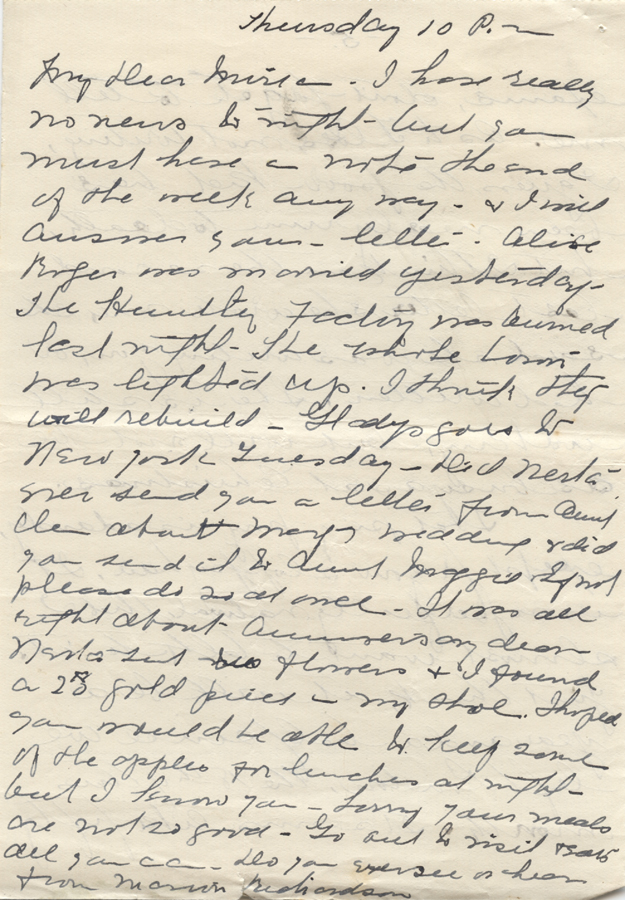 Thursday 10 P.m
My Dear Miriam - I have really
no news to night - but you
must have a note the end
of the week any way - & I will
answer your letter. Alice
Roger was married yesterday -
The Huntley Factory was burned
last night - The whole town
was lighted up. I think they
will rebuild - Gladys goes to
New York Tuesday - Did Nesta
ever send you a letter from Aunt
Clem about Mary's wedding & did
you send it to Aunt Maggie If not
please do so at once - It was all
right about Anniversary dear
Nesta sent flowers & I found
a 2.50 gold piece in my shoe. I hoped
you would be able to keep some
of the apples for lunches at night -
but I know you - Sorry your meals
are not so good - Go out to visit & eat
all you can - Do you ever see or hear
from Marion Richardson